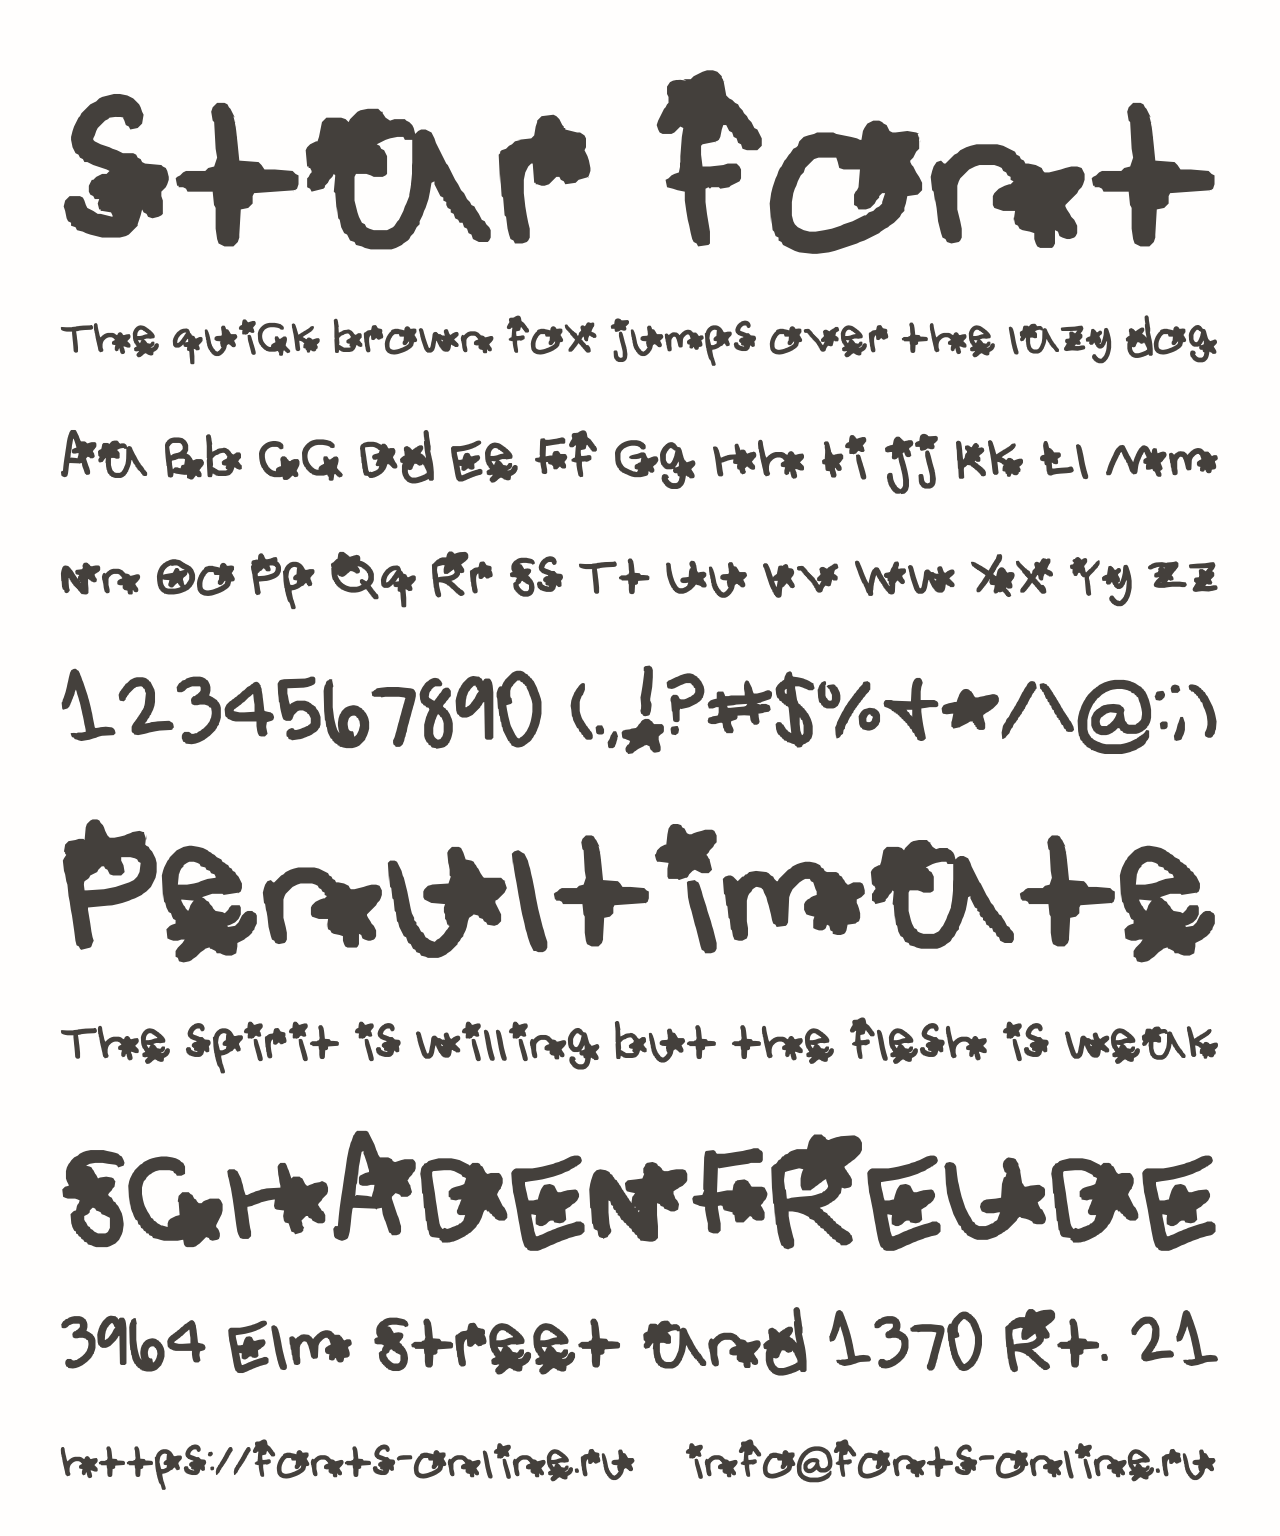 Star Font
The quick brown fox jumps over the lazy dog
Aa Bb Cc Dd Ee Ff Gg Hh Ii Jj Kk Ll Mm
Nn Oo Pp Qq Rr Ss Tt Uu Vv Ww Xx Yy Zz
1234567890 (.,!?#$%+*/\@:;)
Penultimate
The spirit is willing but the flesh is weak
SCHADENFREUDE
3964 Elm Street and 1370 Rt. 21
https://fonts-online.ru info@fonts-online.ru